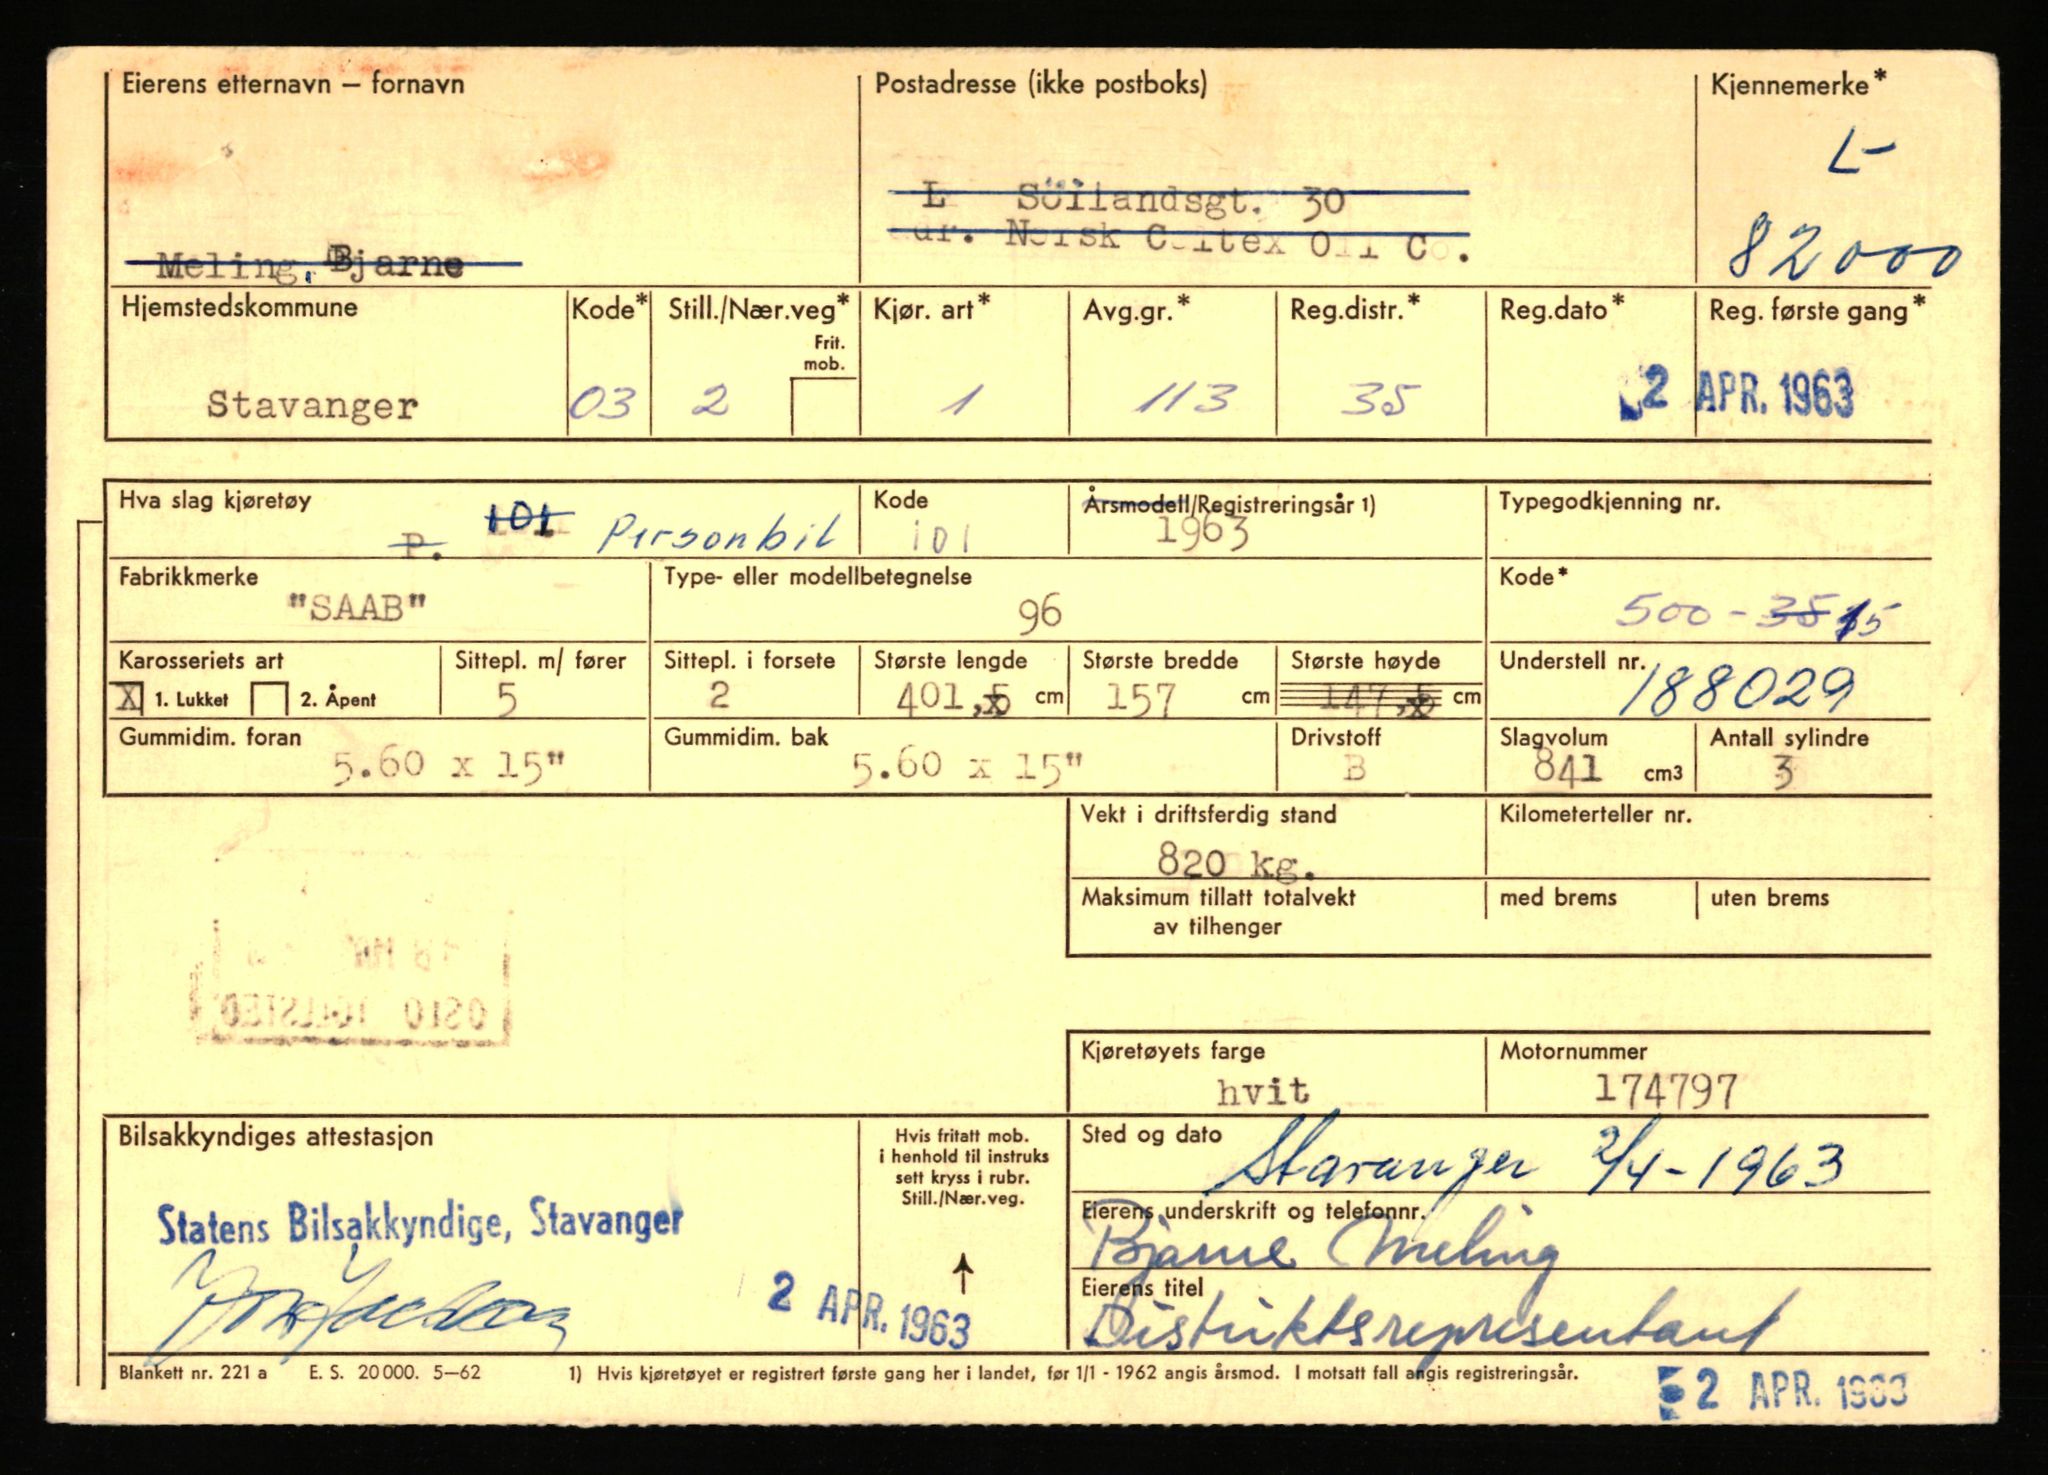 Eierens etternavn – fornavn
Postadresse (ikke postboks)
Kjennemerke*
L-
82000
L Söllandsgt. 30
adr. Norsk Caltex Oil Co.
Meling, Bjarne
Hjemstedskommune
Kode*
Still./Nær.veg*
Frit.
mob.
Kjør. art*
Avg.gr.*
Reg.distr.*
Reg.dato*
Reg. første gang*
Stavanger
03
2
1
113
35
2 APR. 1963
Hva slag kjøretøy
P. 101 Personbil
Kode
101
Årsmodell/Registreringsår 1)
1963
Typegodkjenning nr.
Fabrikkmerke
"SAAB"
Type- eller modellbetegnelse
96
Kode*
500-35 15
Karosseriets art
X 1. Lukket
2. Åpent
Sittepl. m/ fører
5
Sittepl. i forsete
2
Største lengde
401,5 cm
Største bredde
157 cm
Største høyde
147,5 cm
Understell nr.
188029
Gummidim. foran
5.60 x 15"
Gummidim. bak
5.60 x 15"
Drivstoff
B
Slagvolum
841 cm3
Antall sylindre
3
Vekt i driftsferdig stand
820 kg.
Kilometerteller nr.
Maksimum tillatt totalvekt
av tilhenger
med brems
uten brems
OSLO TOLLSTED
Kjøretøyets farge
hvit
Motornummer
174797
Bilsakkyndiges attestasjon
Statens Bilsakkyndige, Stavanger
2 APR. 1963
Hvis fritatt mob.
i henhold til instruks
sett kryss i rubr.
Still./Nær.veg.
Sted og dato
Stavanger 2/4-1963
Eierens underskrift og telefonnr.
Bjarne Meling
Eierens titel
Distriktsrepresentant
Blankett nr. 221 a E. S. 20 000. 5–62
1) Hvis kjøretøyet er registrert første gang her i landet, før 1/1 - 1962 angis årsmod. I motsatt fall angis registreringsår.
2 APR. 1963